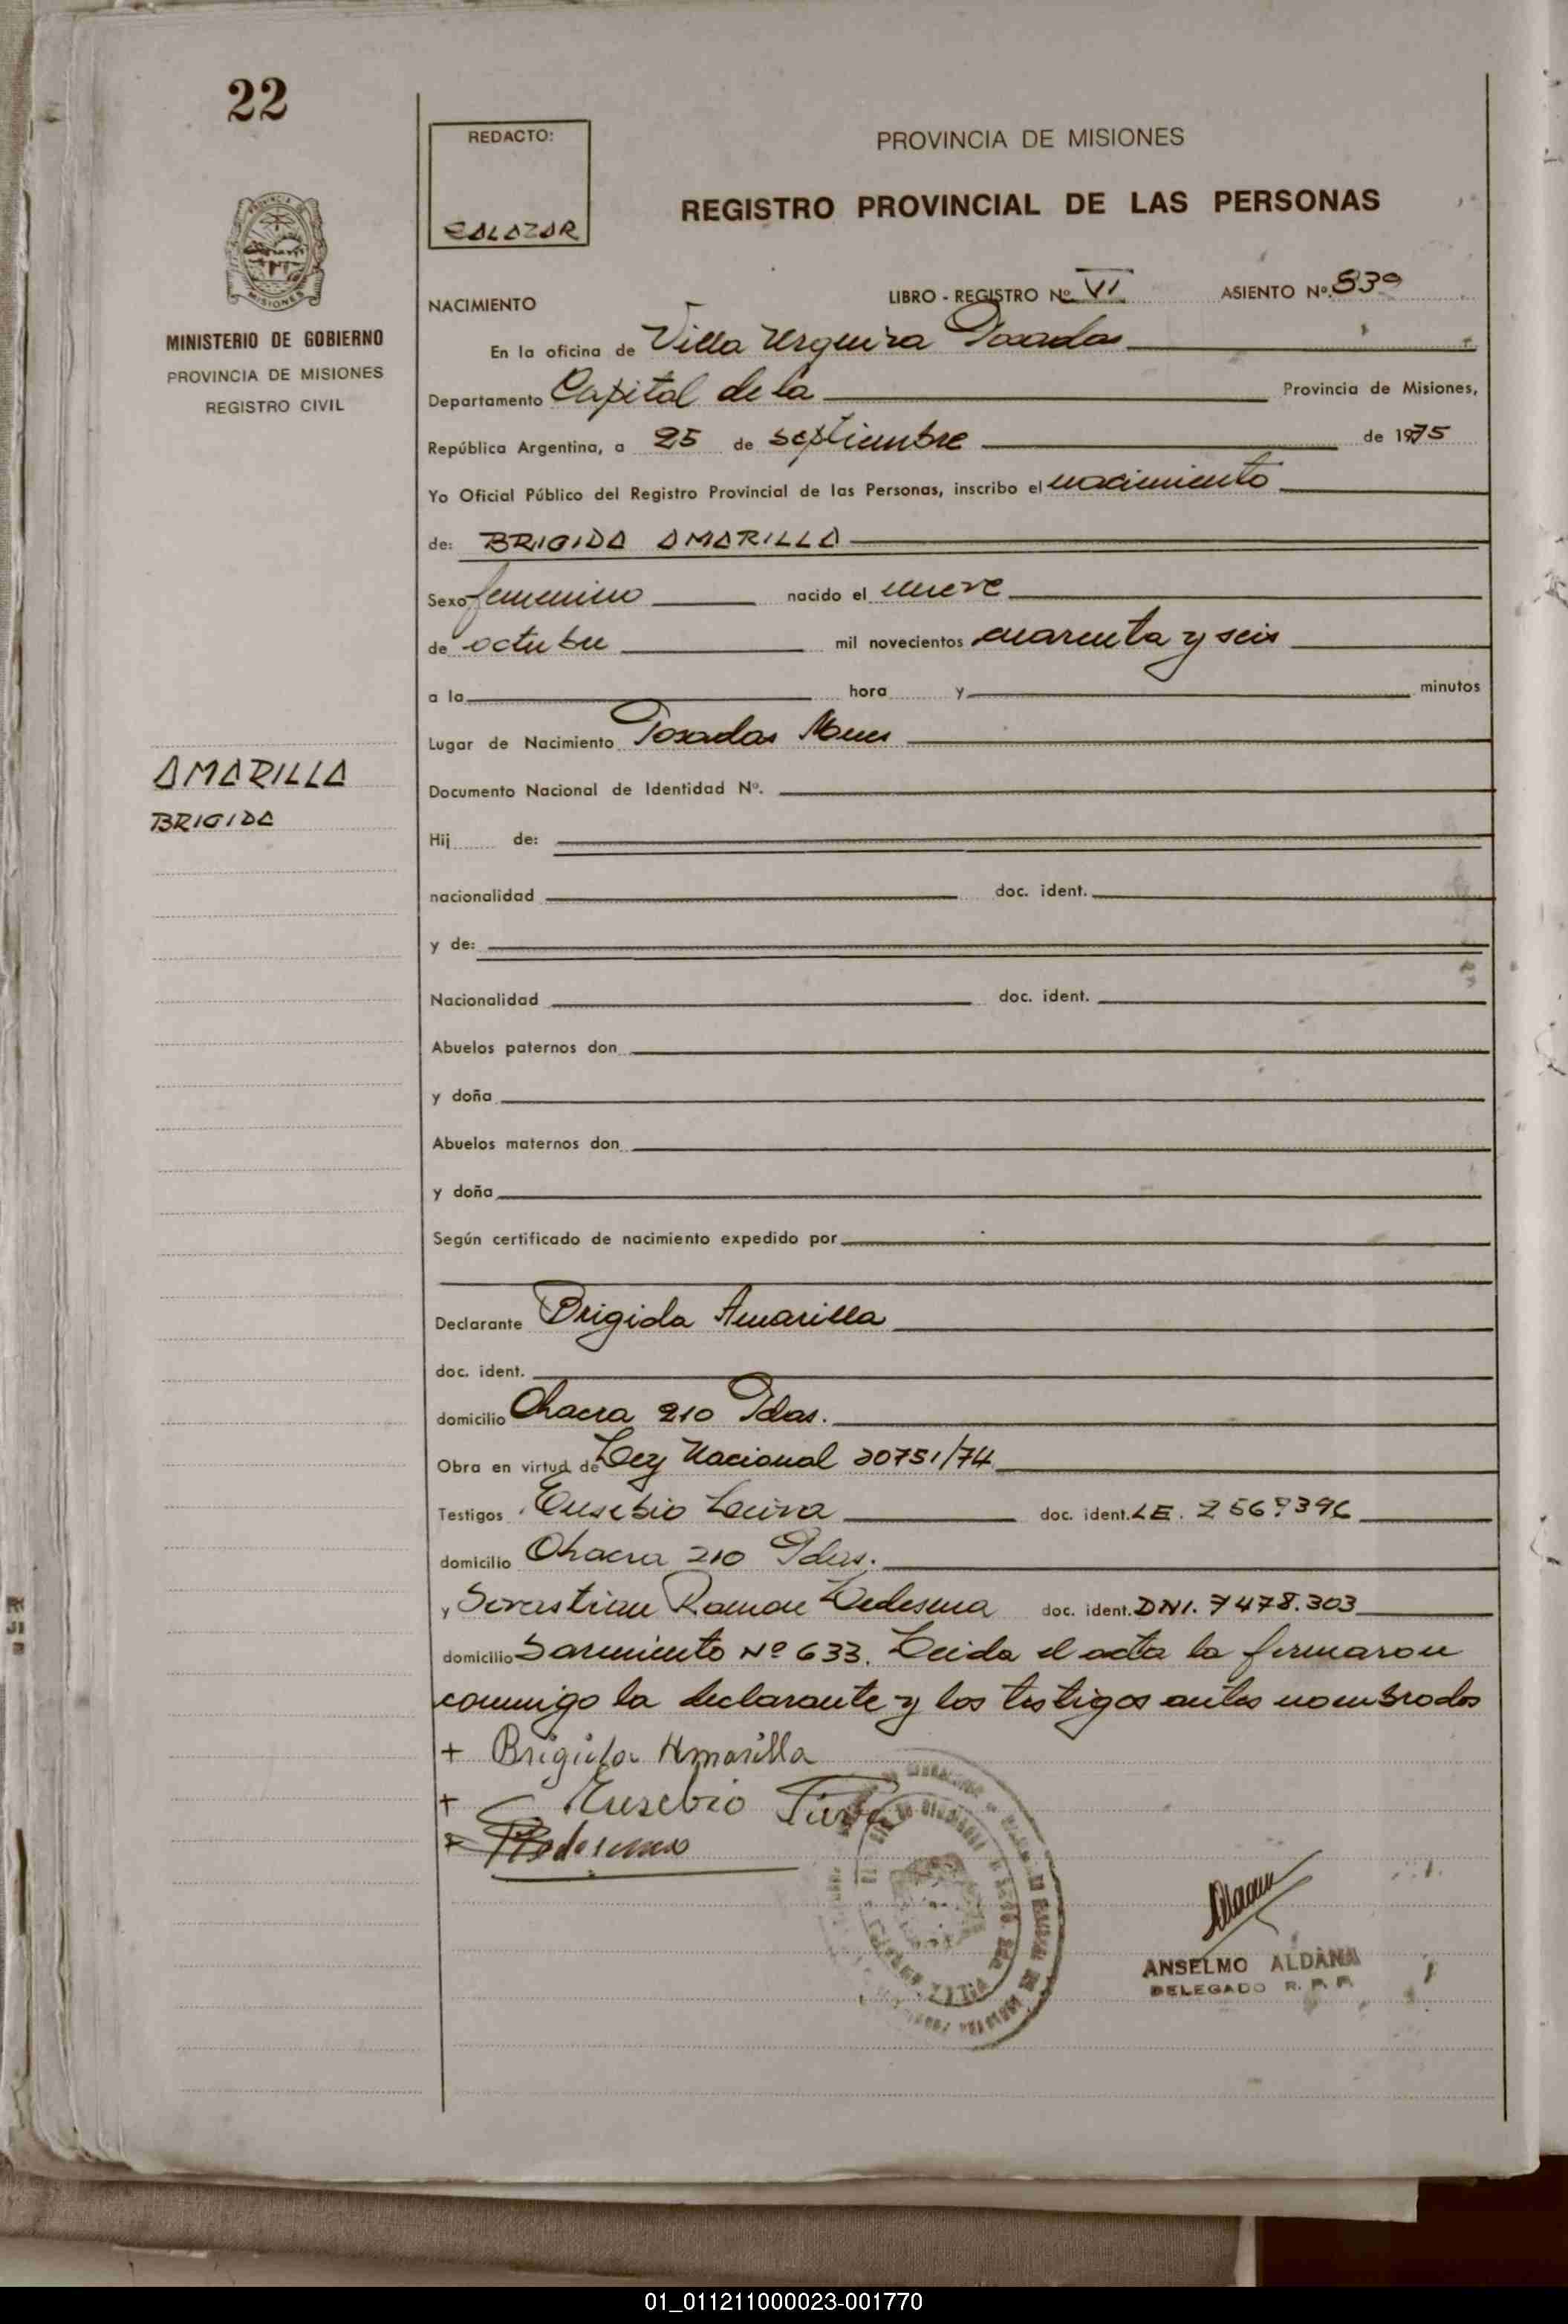 22
REDACTO:
SALAZAR
PROVINCIA DE MISIONES
REGISTRO PROVINCIAL DE LAS PERSONAS
MISIONES
MINISTERIO DE GOBIERNO
PROVINCIA DE MISIONES
REGISTRO CIVIL
NACIMIENTO LIBRO - REGISTRO Nº VI ASIENTO Nº. 839
En la oficina de Villa Urquiza Posadas
Departamento Capital de la Provincia de Misiones,
República Argentina, a 25 de septiembre de 1975
Yo Oficial Público del Registro Provincial de las Personas, inscribo el nacimiento
de: BRIGIDA AMARILLA
Sexo femenino nacido el nueve
de octubre mil novecientos cuarenta y seis
a la hora y minutos
Lugar de Nacimiento Posadas Mnes
AMARILLA
BRIGIDA
Documento Nacional de Identidad Nº.
Hij de:
nacionalidad doc. ident.
y de:
Nacionalidad doc. ident.
Abuelos paternos don
y doña
Abuelos maternos don
y doña
Según certificado de nacimiento expedido por
Declarante Brigida Amarilla
doc. ident.
domicilio Chacra 210 Pdas.
Obra en virtud de Ley Nacional 20751/74
Testigos Eusebio doc. ident. LE.
domicilio Chacra 210 Pdas.
y Sevastian Ramon Ledesma doc. ident. DNI. 7478.303
domicilio Sarmiento Nº 633. Leida el acta la firmaron
conmigo la declarante y los testigos antes nombrados
+ Brigida Amarilla
+ Eusebio
ANSELMO ALDANA
DELEGADO R. P. P.
01_011211000023-001770